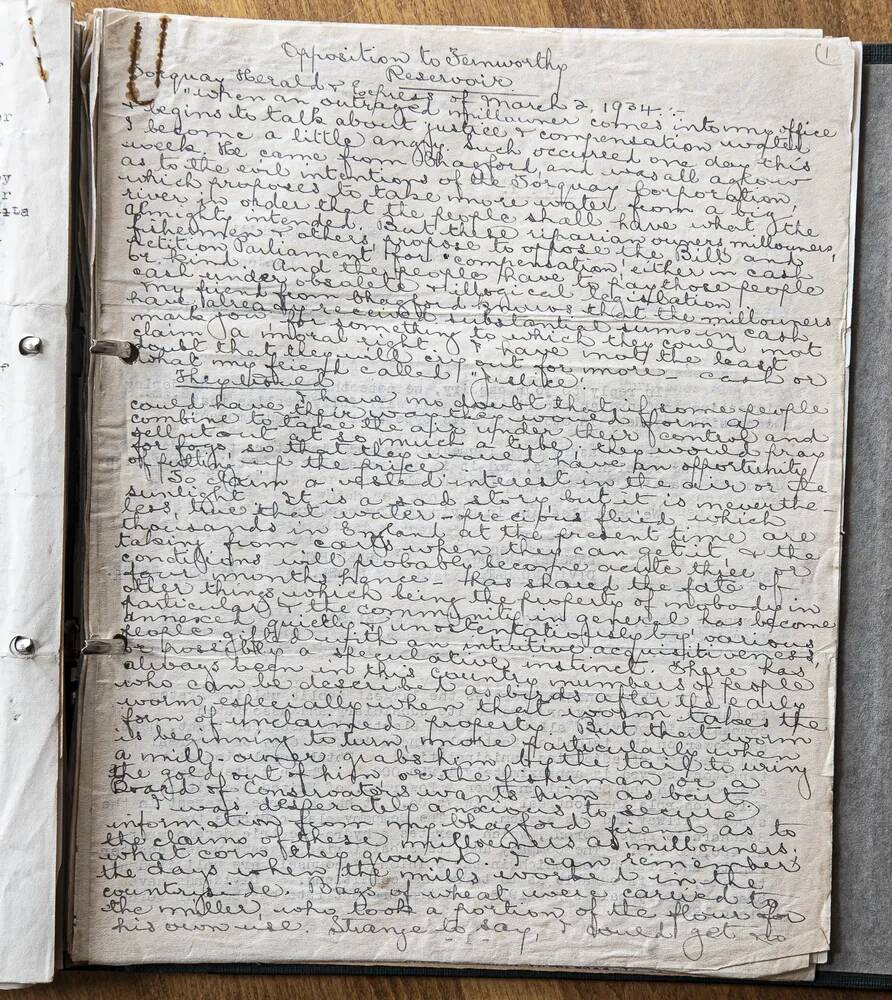 (1
Opposition to Fernworthy
Reservoir
Torquay Herald & Express of March 2, 1934:-
"When an outraged millowner comes into my office
& begins to talk about justice & compensation water
I become a little angry. Such occurred one day this
week. He came from Chagford, and was all aglow
as to the evil intentions of the Torquay Corporation,
which proposes to take more water from a big
river in order that the people shall have what the
Almighty intended. But these riparian owners, millowners,
fishermen & others propose to oppose the Bill and
Petition Parliament for 'compensation', either in cash
or kind. And the people have to pay those people
cash under obsolete & illogical legislation.
My friend from Chagford knows that the millowners
have already received substantial sums in cash
mark you for something to which they could not
claim a moral right, & I have not the least
doubt that they will cry out for more cash or
what my friend called "Justice".
They would
I have no doubt that if some people
could have their way they would form a
combine to take the air under their control and
sell it out at so much a tube; they would pray
for fogs, so that they would have an opportunity
of putting up the price.
To claim a vested interest in the air or the
sunlight. It is a sad story but it is neverthe-
less true that water precious fluid which
thousands in England at the present time are
taking from carts when they can get it, & the
conditions will probably become acute three or
four months hence - has shared the fate of
other things which being the property of nobody in
particular & the community in general has become
annexed quietly & unostentatiously by various
people gifted with an intuitive acquisitiveness,
or possibly a speculative instinct. There has
always been in this country numbers of people
who can be described as birds after the early
worm, especially when that worm takes the
form of unclaimed property. But that worm
is beginning to turn more particularly when
a mill-owner grabs him by the tail to wring
the gold out of him or the fisherman or a
Board of Conservators wants him as bait.
I was desperately anxious to secure
information from my Chagford friend as to
the claims of these millowners as millowners;
what corn they ground. I can remember
the days when the mills worked in the
countryside. Bags of wheat were carried to
the miller, who took a portion of the flour for
his own use. Strange to say, I could get no